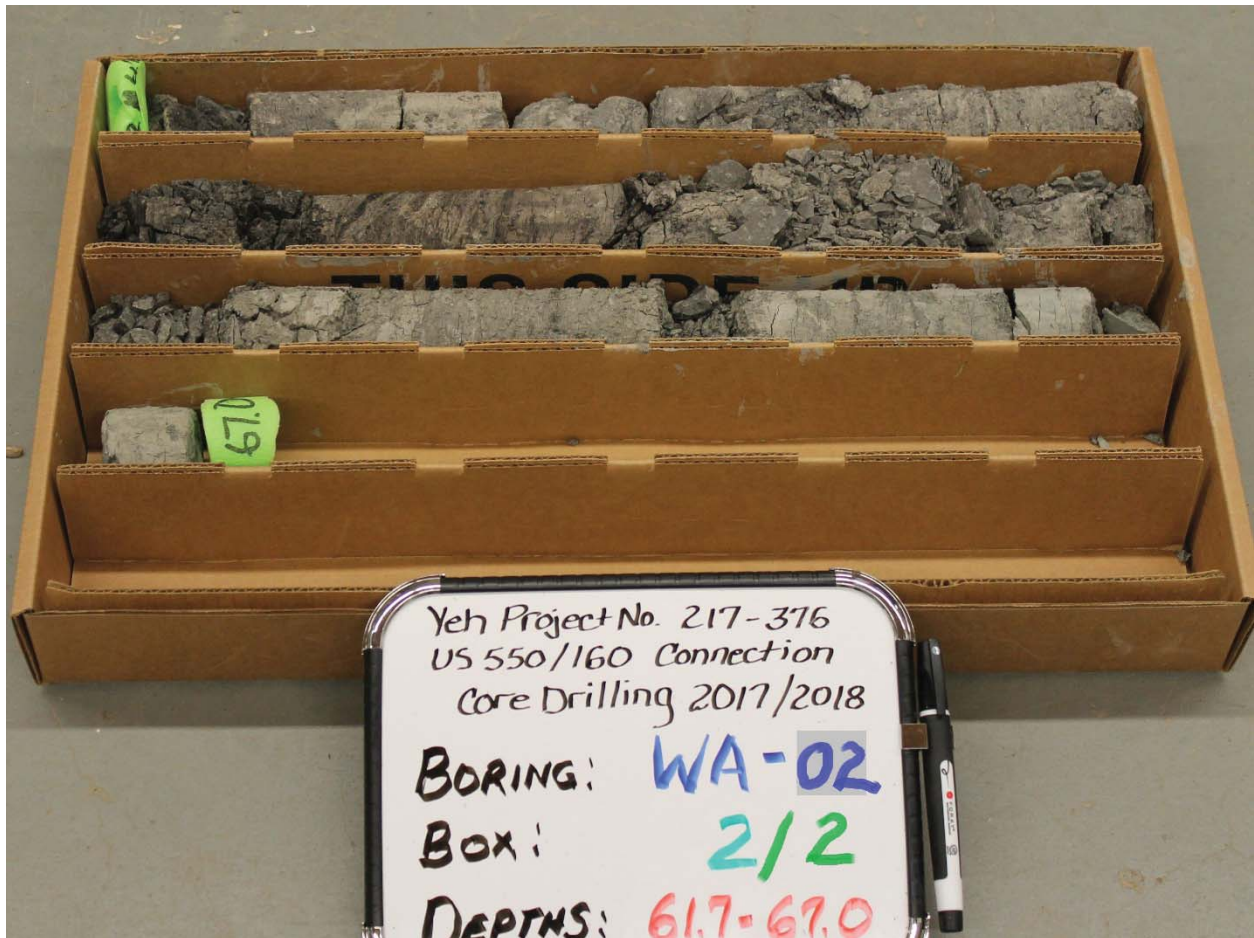 THIS SIDE UP
67.0
Yeh Project No. 217-376
US 550/160 Connection
Core Drilling 2017/2018
BORING: WA-02
BOX: 2/2
DEPTHS: 61.7-67.0